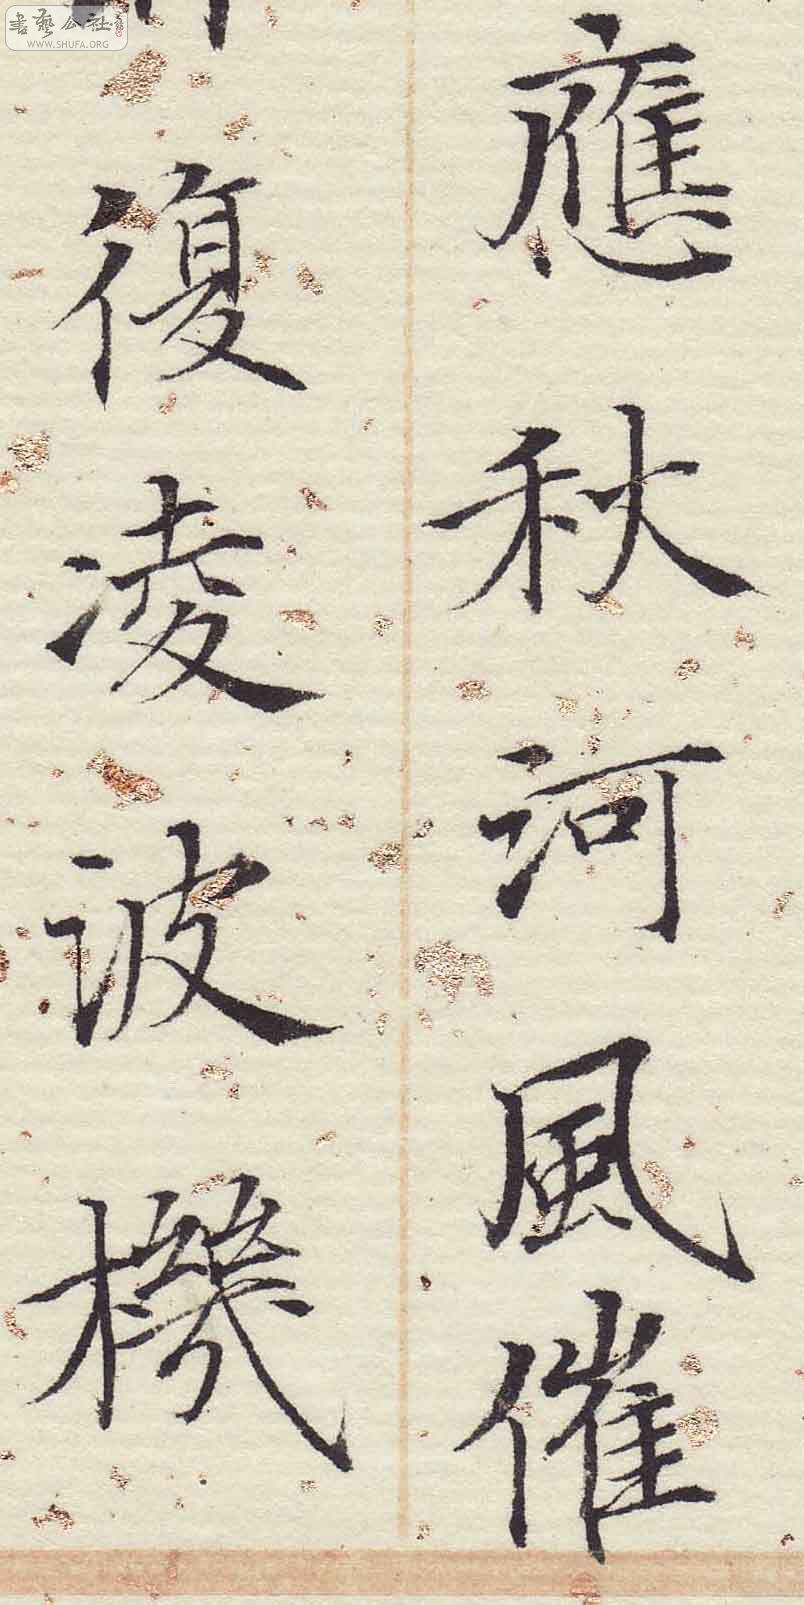 應秋河風催
復凌波機
書藝公社
WWW.SHUFA.ORG